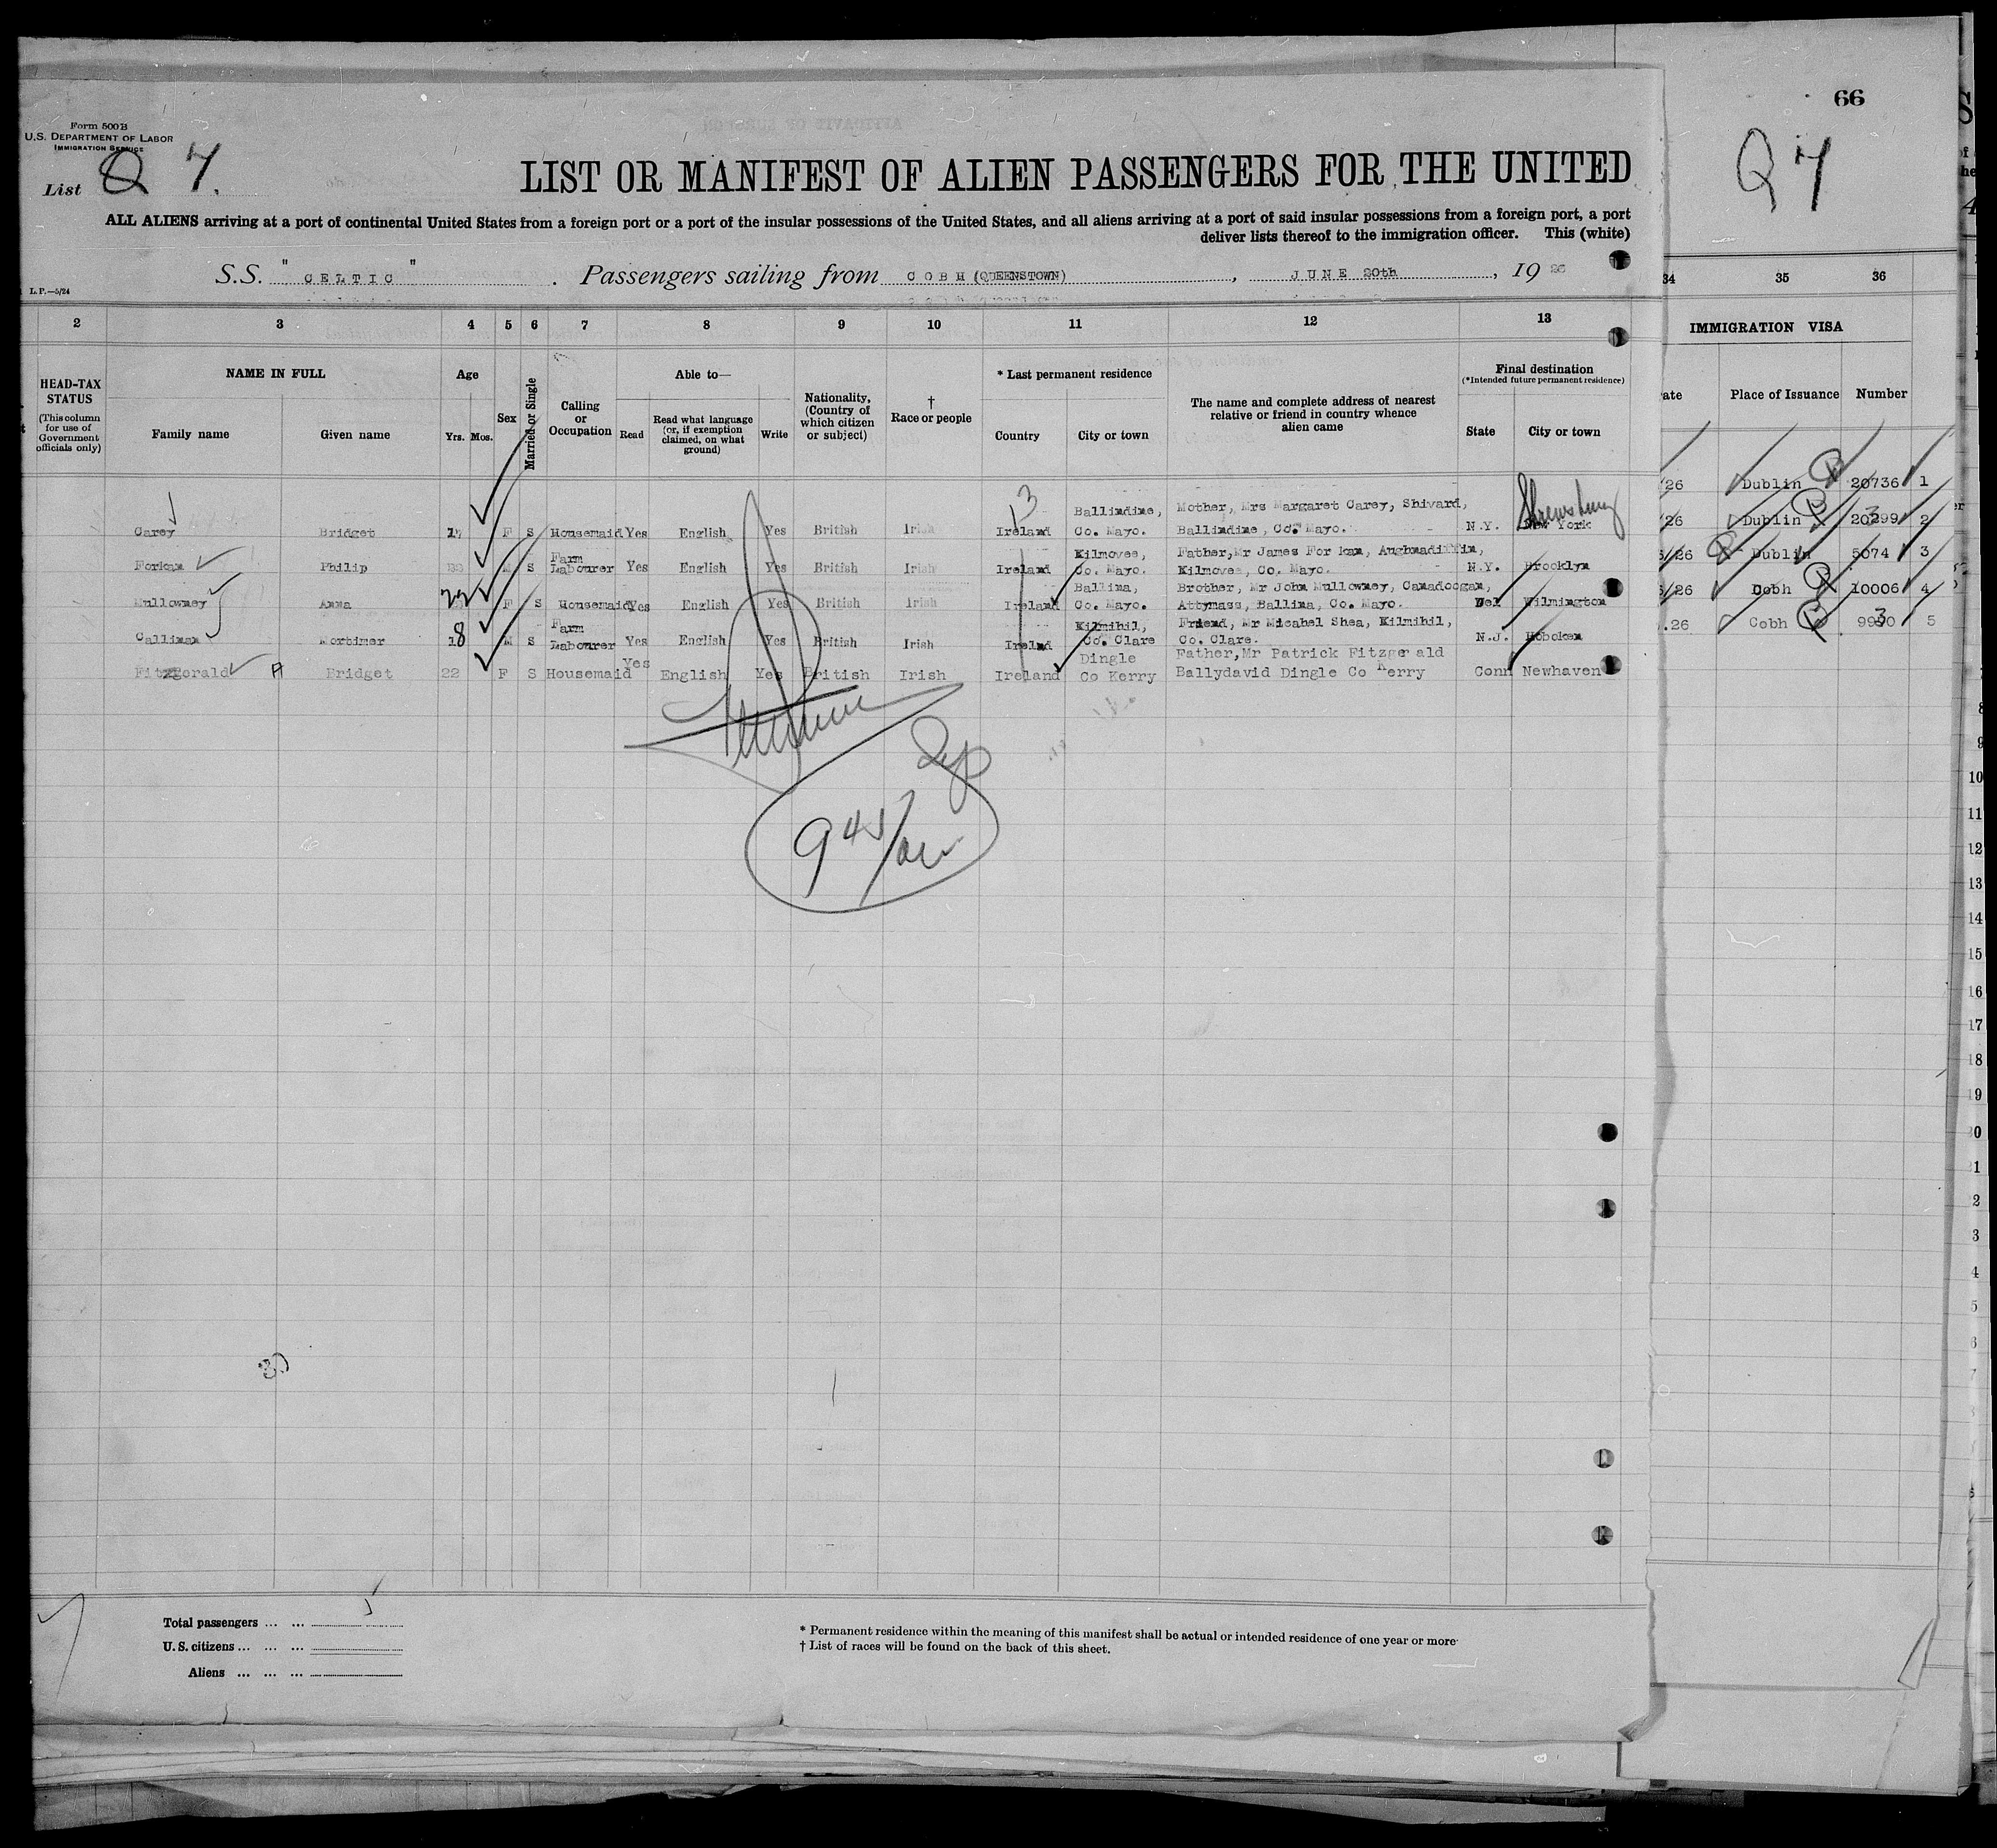 66
Form 500B
U.S. DEPARTMENT OF LABOR
IMMIGRATION SERVICE
List Q 7.
Q 7
LIST OR MANIFEST OF ALIEN PASSENGERS FOR THE UNITED
ALL ALIENS arriving at a port of continental United States from a foreign port or a port of the insular possessions of the United States, and all aliens arriving at a port of said insular possessions from a foreign port, a port
deliver lists thereof to the immigration officer. This (white)
S.S. " CELTIC " . Passengers sailing from COBH (QUEENSTOWN) , JUNE 20th , 19 26
L. P.—5/24
2 3 4 5 6 7 8 9 10 11 12 13
34 35 36
IMMIGRATION VISA
Place of Issuance Number
HEAD-TAX STATUS
(This column for use of Government officials only)
NAME IN FULL
Family name Given name
Age
Yrs. Mos.
Sex
Married or Single
Calling or Occupation
Able to—
Read
Read what language (or, if exemption claimed, on what ground)
Write
Nationality, (Country of which citizen or subject)
† Race or people
* Last permanent residence
Country City or town
The name and complete address of nearest relative or friend in country whence alien came
Final destination
(*Intended future permanent residence)
State City or town
Ballindine, Mother, Mrs Margaret Carey, Shivard, Shrewsbury
Carey Bridget 17 F S Housemaid Yes English Yes British Irish Ireland Co. Mayo. Ballindine, Co. Mayo. N.Y. New York
/26 Dublin 20736 1
Farm Kilmovee, Father, Mr James Forkan,
Forkan Philip M S Labourer Yes English Yes British Irish Ireland Co. Mayo. Kilmovee, Co. Mayo. N.Y. Brooklyn
/26 Dublin 20299 2
Ballina, Brother, Mr John Mullowney, Canadoogan,
Mullowney Anna 22 F S Housemaid Yes English Yes British Irish Ireland Co. Mayo. Attymass, Ballina, Co. Mayo. Del Wilmington
/26 Dublin 5074 3
Farm Kilmihil, Friend, Mr Micahel Shea, Kilmihil,
Callinan Mortimer 18 M S Labourer Yes English Yes British Irish Ireland Co. Clare Co. Clare. N.J. Hoboken
/26 Cobh 10006 4
Yes Dingle Father, Mr Patrick Fitzgerald
FitzGerald A Bridget 22 F S Housemaid English Yes British Irish Ireland Co Kerry Ballydavid Dingle Co Kerry Conn Newhaven
.26 Cobh 5
945/
Total passengers ... ... 5
U. S. citizens ... ... ...
Aliens ... ... ...
* Permanent residence within the meaning of this manifest shall be actual or intended residence of one year or more
† List of races will be found on the back of this sheet.
8
9
10
11
12
13
14
15
16
17
18
19